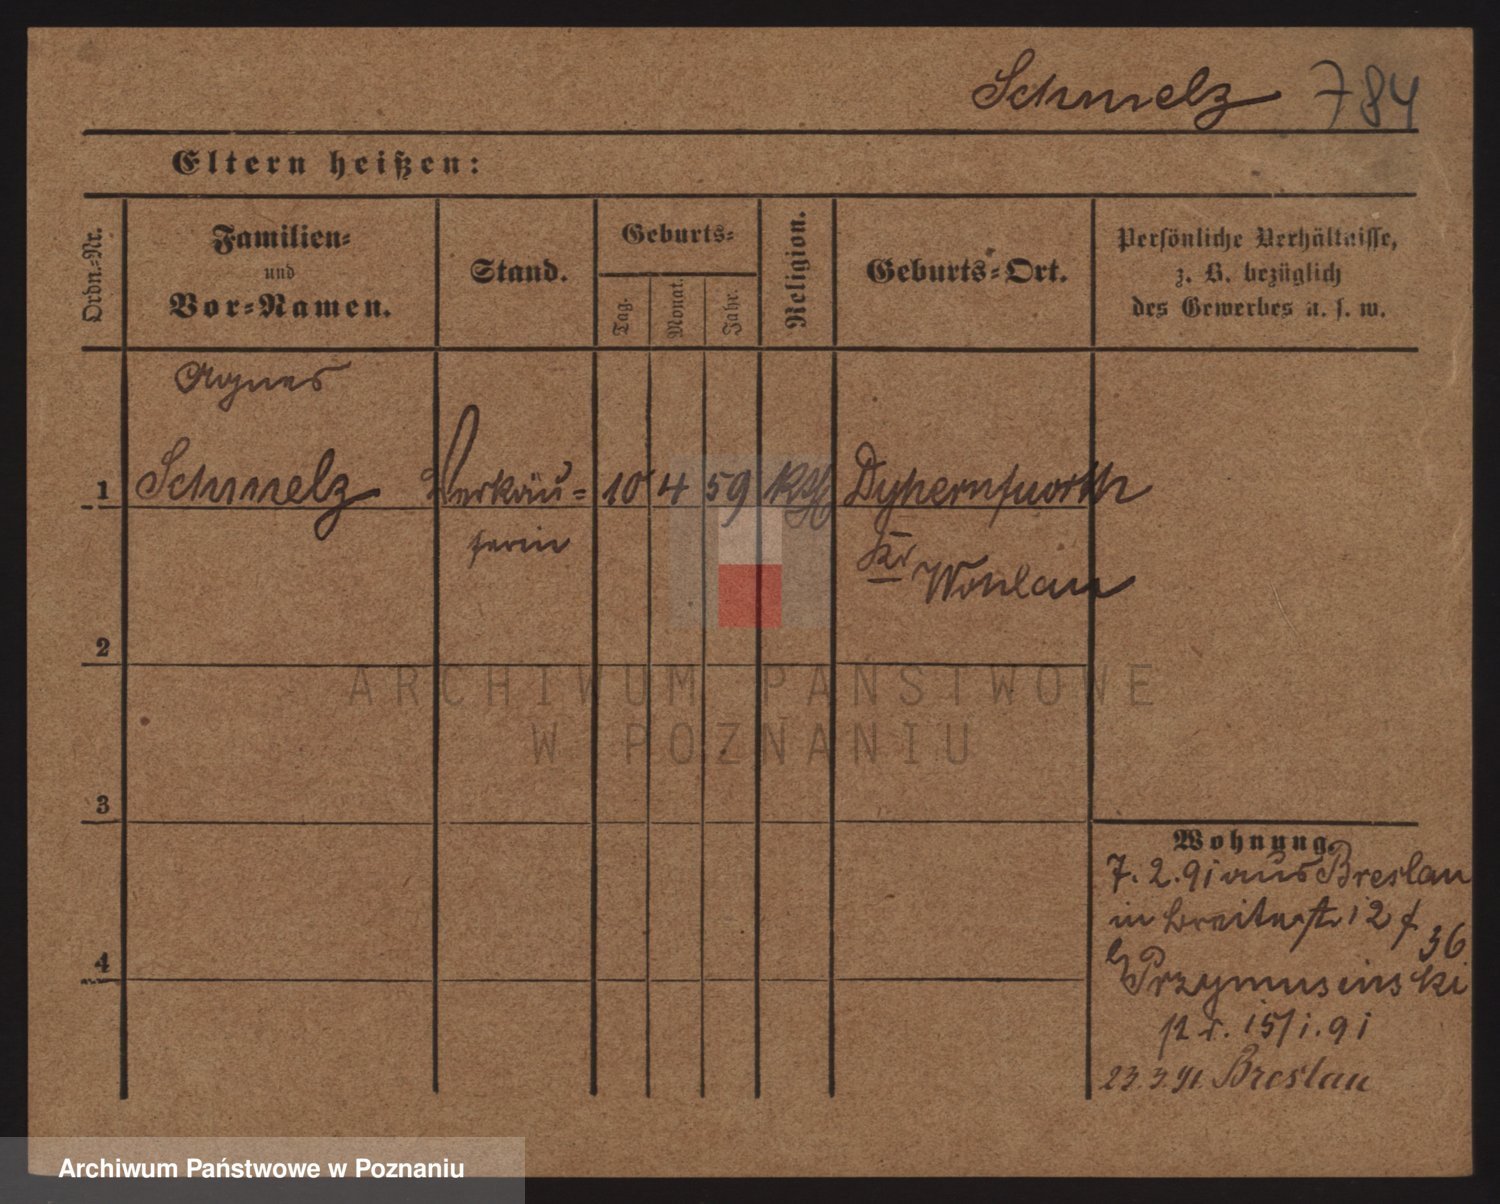 Schmelz 784
Eltern heißen:
Ordn.-Nr.
Familien-
und
Vor-Namen.
Stand.
Geburts-
Tag.
Monat.
Jahr.
Religion.
Geburts-Ort.
Persönliche Verhältnisse,
z. B. bezüglich
des Gewerbes u. s. w.
Agnes
1 Schmelz Verkäu= 10 4 59 Dyhernfurth
ferin
Kr Wohlau
2
3
4
Wohnung.
7. 2. 91 aus Breslau
in Breitestr 12
36
Przymusinski
15/1. 91
23. 3. 91. Breslau
ARCHIWUM PAŃSTWOWE
W POZNANIU
Archiwum Państwowe w Poznaniu